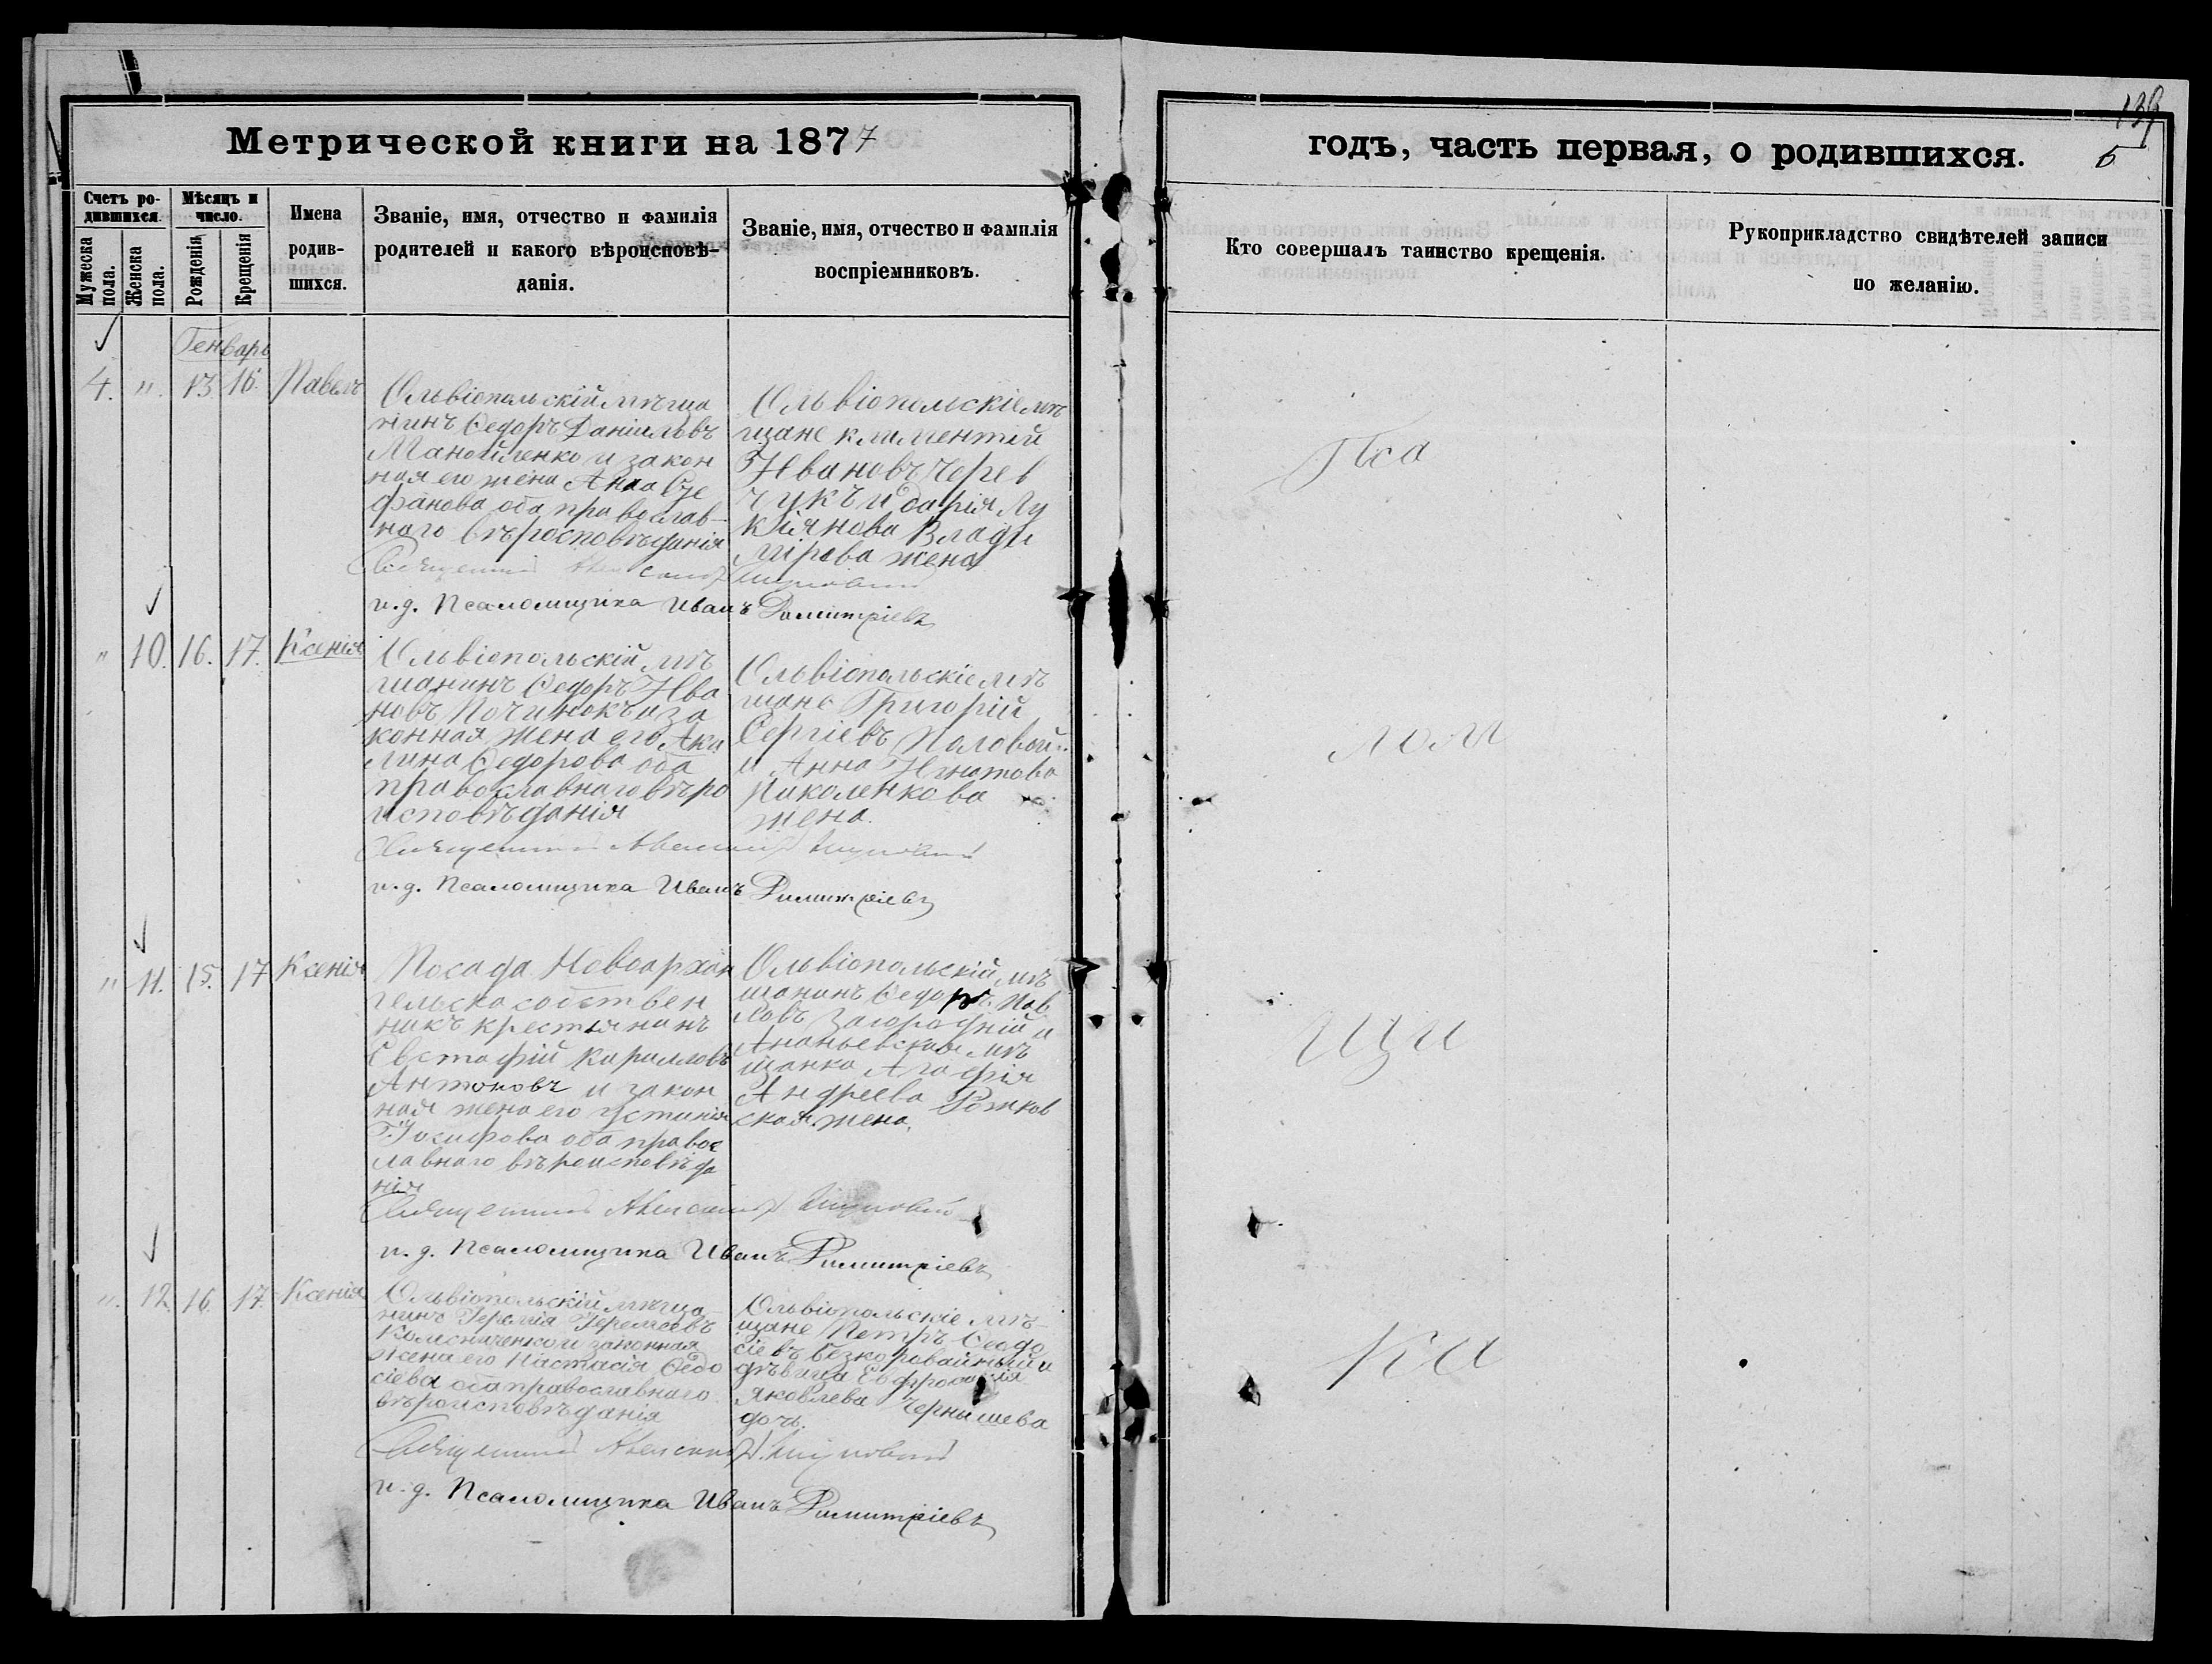 Метрической книги на 1877
годъ, часть первая, о родившихся.
139
5
Счетъ ро-
дившихся.
Мѣсяцъ и
число.
Мужеска
пола.
Женска
пола.
Рожденія
Крещенія
Имена
родив-
шихся.
Званіе, имя, отчество и фамилія
родителей и какого вѣроисповѣ-
данія.
Званіе, имя, отчество и фамилія
воспріемниковъ.
Кто совершалъ таинство крещенія.
Рукоприкладство свидѣтелей записи
по желанію.
Генварь
4. " 13. 16. Павелъ
Ольвіопольскій мѣща
нинъ Ѳедоръ Даніиловъ
Манойленко и закон
ная его жена Анна Сте
фанова оба православ-
наго вѣроисповѣданія
Ольвіопольскіе мѣ
щане Климентій
Ивановъ Черев
чукъ и Дарія Лу
кіянова Влади
мірова жена
Пса
Священникъ Александръ
и.д. Псаломщика Иванъ Димитріевъ
" 10. 16. 17. Ксенія
Ольвіопольскій мѣ
щанинъ Ѳедоръ Ива
новъ Починокъ и за
конная жена его Аки
лина Ѳедорова оба
православнаго вѣро
исповѣданія
Ольвіопольскіе мѣ
щане Григорій
Сергіевъ Половой
и Анна Игнатова
Николенкова
жена.
лом
Священникъ Александръ
и.д. Псаломщика Иванъ Димитріевъ
" 11. 15. 17 Ксенія
Посада Новоархан
гельска собствен
никъ крестьянинъ
Евстафій Кирилловъ
Антоновъ и закон
ная жена его Устинія
Іосифова оба правос
лавнаго вѣроисповѣда
нія
Ольвіопольскій мѣ
щанинъ Ѳедоръ Пав
ловъ Загородній и
Ананьевская мѣ
щанка Агафія
Андреева Рожков
ская жена.
щи
Священникъ Александръ
и.д. Псаломщика Иванъ Димитріевъ
" 12. 16. 17. Ксенія
Ольвіопольскій мѣща-
нинъ Іеремія Іереміевъ
Колисниченко и законная
жена его Настасія Ѳедо
сіева оба православнаго
вѣроисповѣданія
Ольвіопольскіе мѣ-
щане Петръ Ѳеодо
сіевъ Безкоровайный и
дѣвица Евфросинія
Яковлева Чернышева
дочь.
ка
Священникъ Александръ
и.д. Псаломщика Иванъ Димитріевъ